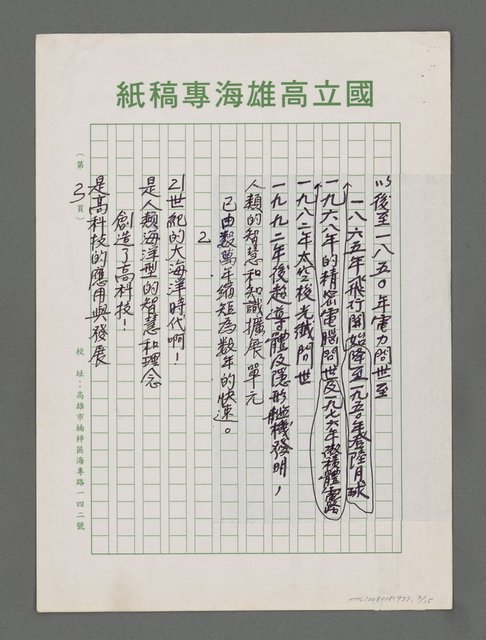 國立高雄海專稿紙
以後至一八五○年電力問世至
一八六五年飛行開始降至一九五○年登陸月球
一九六八年的精密電腦問世及一九七六年微積體電路
一九八二年太空梭光纖問世
一九九二年後超導體及隱形艦機發明，
人類的智慧和知識擴展單元
已由數萬年縮短為数年的快速。
2
21世紀的大海洋時代啊！
是人類海洋型的智慧和理念
創造了高科技！
是高科技的應用與發展
（第3頁）
校址：高雄市楠梓區海專路一四二號